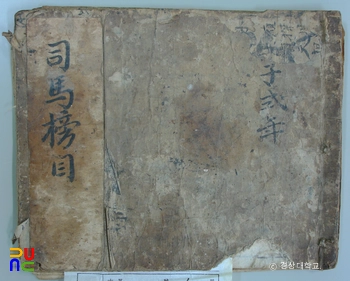 司馬榜目
子式年
© 경상대학교